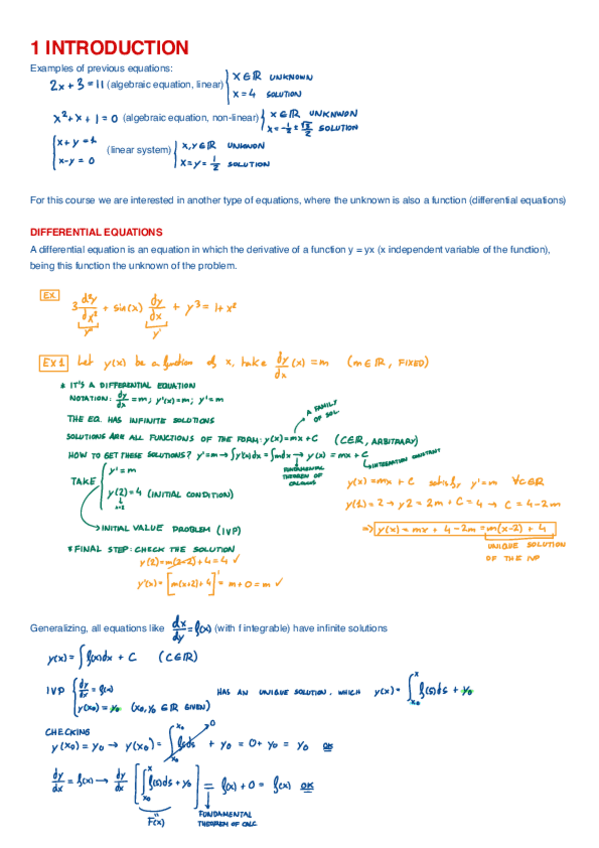 1 INTRODUCTION
Examples of previous equations:
2x + 3 = 11 (algebraic equation, linear) { x ∈ ℝ UNKNOWN
x = 4 SOLUTION
x² + x + 1 = 0 (algebraic equation, non-linear) { x ∈ ℝ UNKNWON
x = -1/2 ± √3/2 SOLUTION
{ x + y = 1
x - y = 0 (linear system) { x, y ∈ ℝ UNKNOWN
x = y = 1/2 SOLUTION
For this course we are interested in another type of equations, where the unknown is also a function (differential equations)
DIFFERENTIAL EQUATIONS
A differential equation is an equation in which the derivative of a function y = yx (x independent variable of the function),
being this function the unknown of the problem.
EX 3 d²y/dx² + sin(x) dy/dx + y³ = 1 + x²
y'' y'
EX 1 Let y(x) be a function of x, take dy/dx (x) = m (m ∈ ℝ, FIXED)
* IT'S A DIFFERENTIAL EQUATION
NOTATION: dy/dx = m; y'(x) = m; y' = m
THE EQ. HAS INFINITE SOLUTIONS
A FAMILY OF SOL.
SOLUTIONS ARE ALL FUNCTIONS OF THE FORM: y(x) = mx + C (C ∈ ℝ, ARBITRARY)
HOW TO GET THESE SOLUTIONS? y' = m → ∫y'(x)dx = ∫mdx → y(x) = mx + C → INTEGRATION CONSTANT
FUNDAMENTAL THEOREM OF CALCULUS
TAKE { y' = m
y(2) = 4 (INITIAL CONDITION)
x=2
→ INITIAL VALUE PROBLEM (IVP)
y(x) = mx + C satisfy y' = m ∀C∈ℝ
y(2) = 2 → y2 = 2m + C = 4 → C = 4 - 2m
⇒ y(x) = mx + 4 - 2m = m(x-2) + 4
UNIQUE SOLUTION
OF THE IVP
* FINAL STEP: CHECK THE SOLUTION
y(2) = m(2-2) + 4 = 4 ✓
y'(x) = [m(x+2) + 4]' = m + 0 = m ✓
Generalizing, all equations like dx/dy = f(x) (with f integrable) have infinite solutions
y(x) = ∫f(x)dx + C (C∈ℝ)
IVP { dy/dx = f(x)
y(x₀) = y₀ (x₀, y₀ ∈ ℝ GIVEN) HAS AN UNIQUE SOLUTION, WHICH y(x) = ∫ₓ₀ˣ f(s)ds + y₀
CHECKING
y(x₀) = y₀ → y(x₀) = ∫ₓ₀ˣ⁰ f(s)ds → 0 + y₀ = 0 + y₀ = y₀ OK
dy/dx = f(x) → dy/dx [∫ₓ₀ˣ f(s)ds + y₀] = f(x) + 0 = f(x) OK
F(x)
FUNDAMENTAL
THEOREM OF CALC